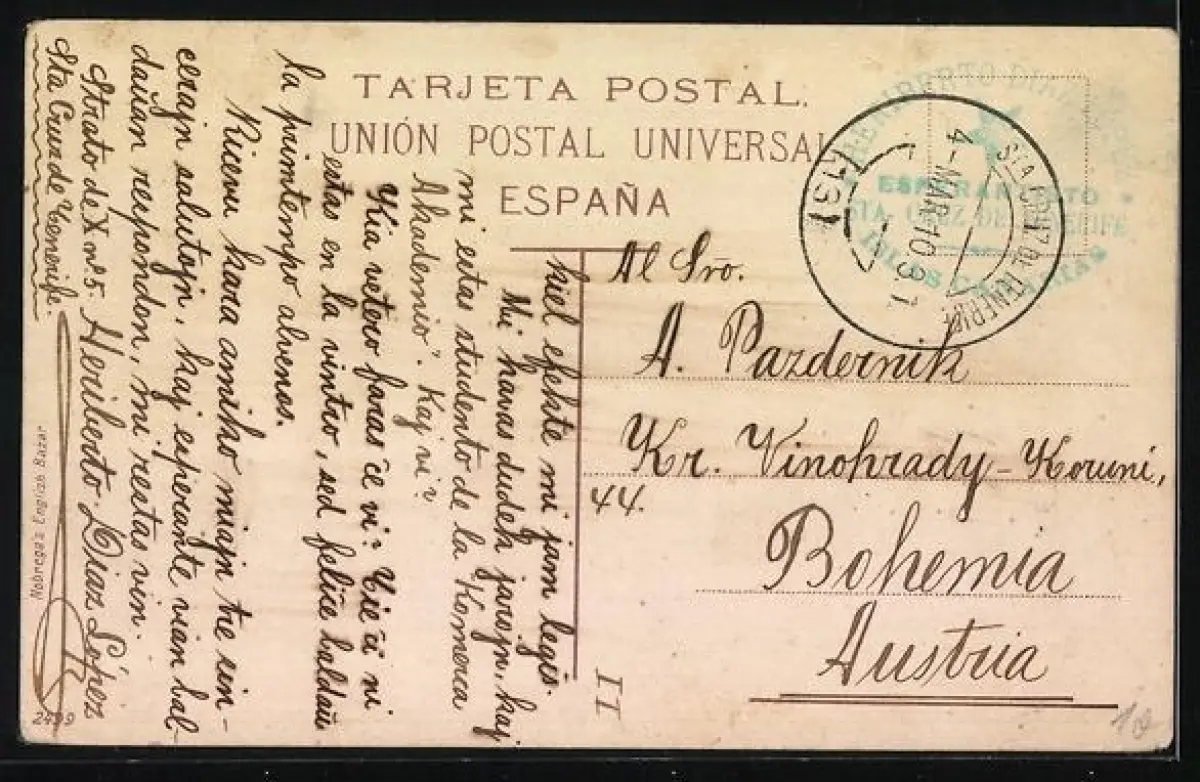 TARJETA POSTAL.
UNIÓN POSTAL UNIVERSAL
ESPAÑA
kiel efekte mi jam legis.
Mi havas dudek jarojn, kaj
mi estas studento de la "Komerca
Akademio". Kaj vi?
Kia vetero faras ĉe vi? Tie ĉi ni
estas en la vintro, sed feliĉe baldaŭ
la printempo alvenos.
Ricevu kara amiko miajn tre sin-
cerajn salutojn, kaj esperante vian bal-
daŭan respondon, mi restas vin.
Strato de X nº 5. Heriberto Diaz López
Sta Cruz de Tenerife.
Al Sro.
A. Pazdernik
Kr. Vinohrady - Koruni,
44.
Bohemia
Austria
II
10
STA CRUZ DE TENERIFE
4-MAR 10 3.T
HERIBERTO DIAZ
ESPERANTISTO
STA. CRUZ DE TENERIFE
Nobrega's English Bazar
2499